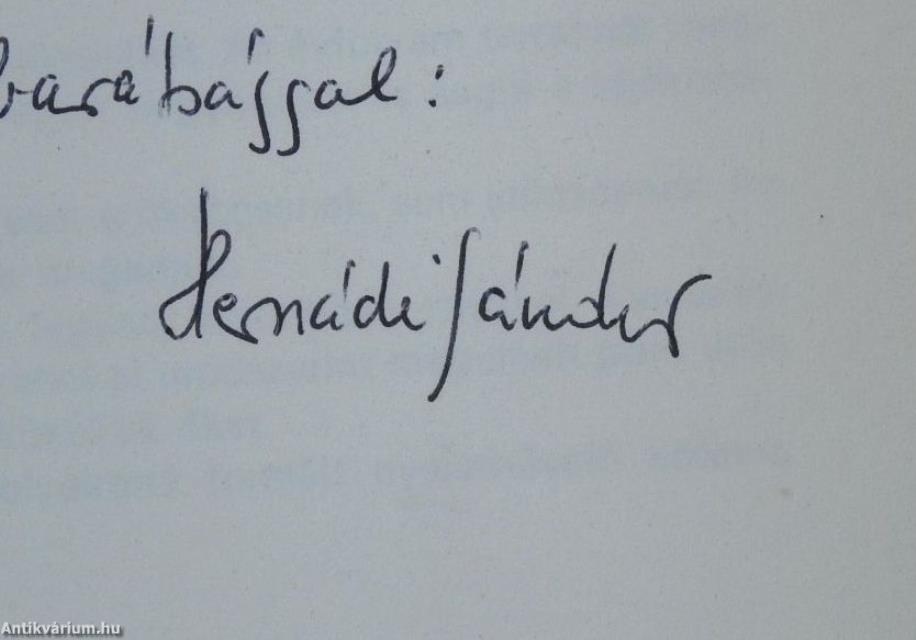 barátsággal:
Hernádi Sándor
Antikvárium.hu